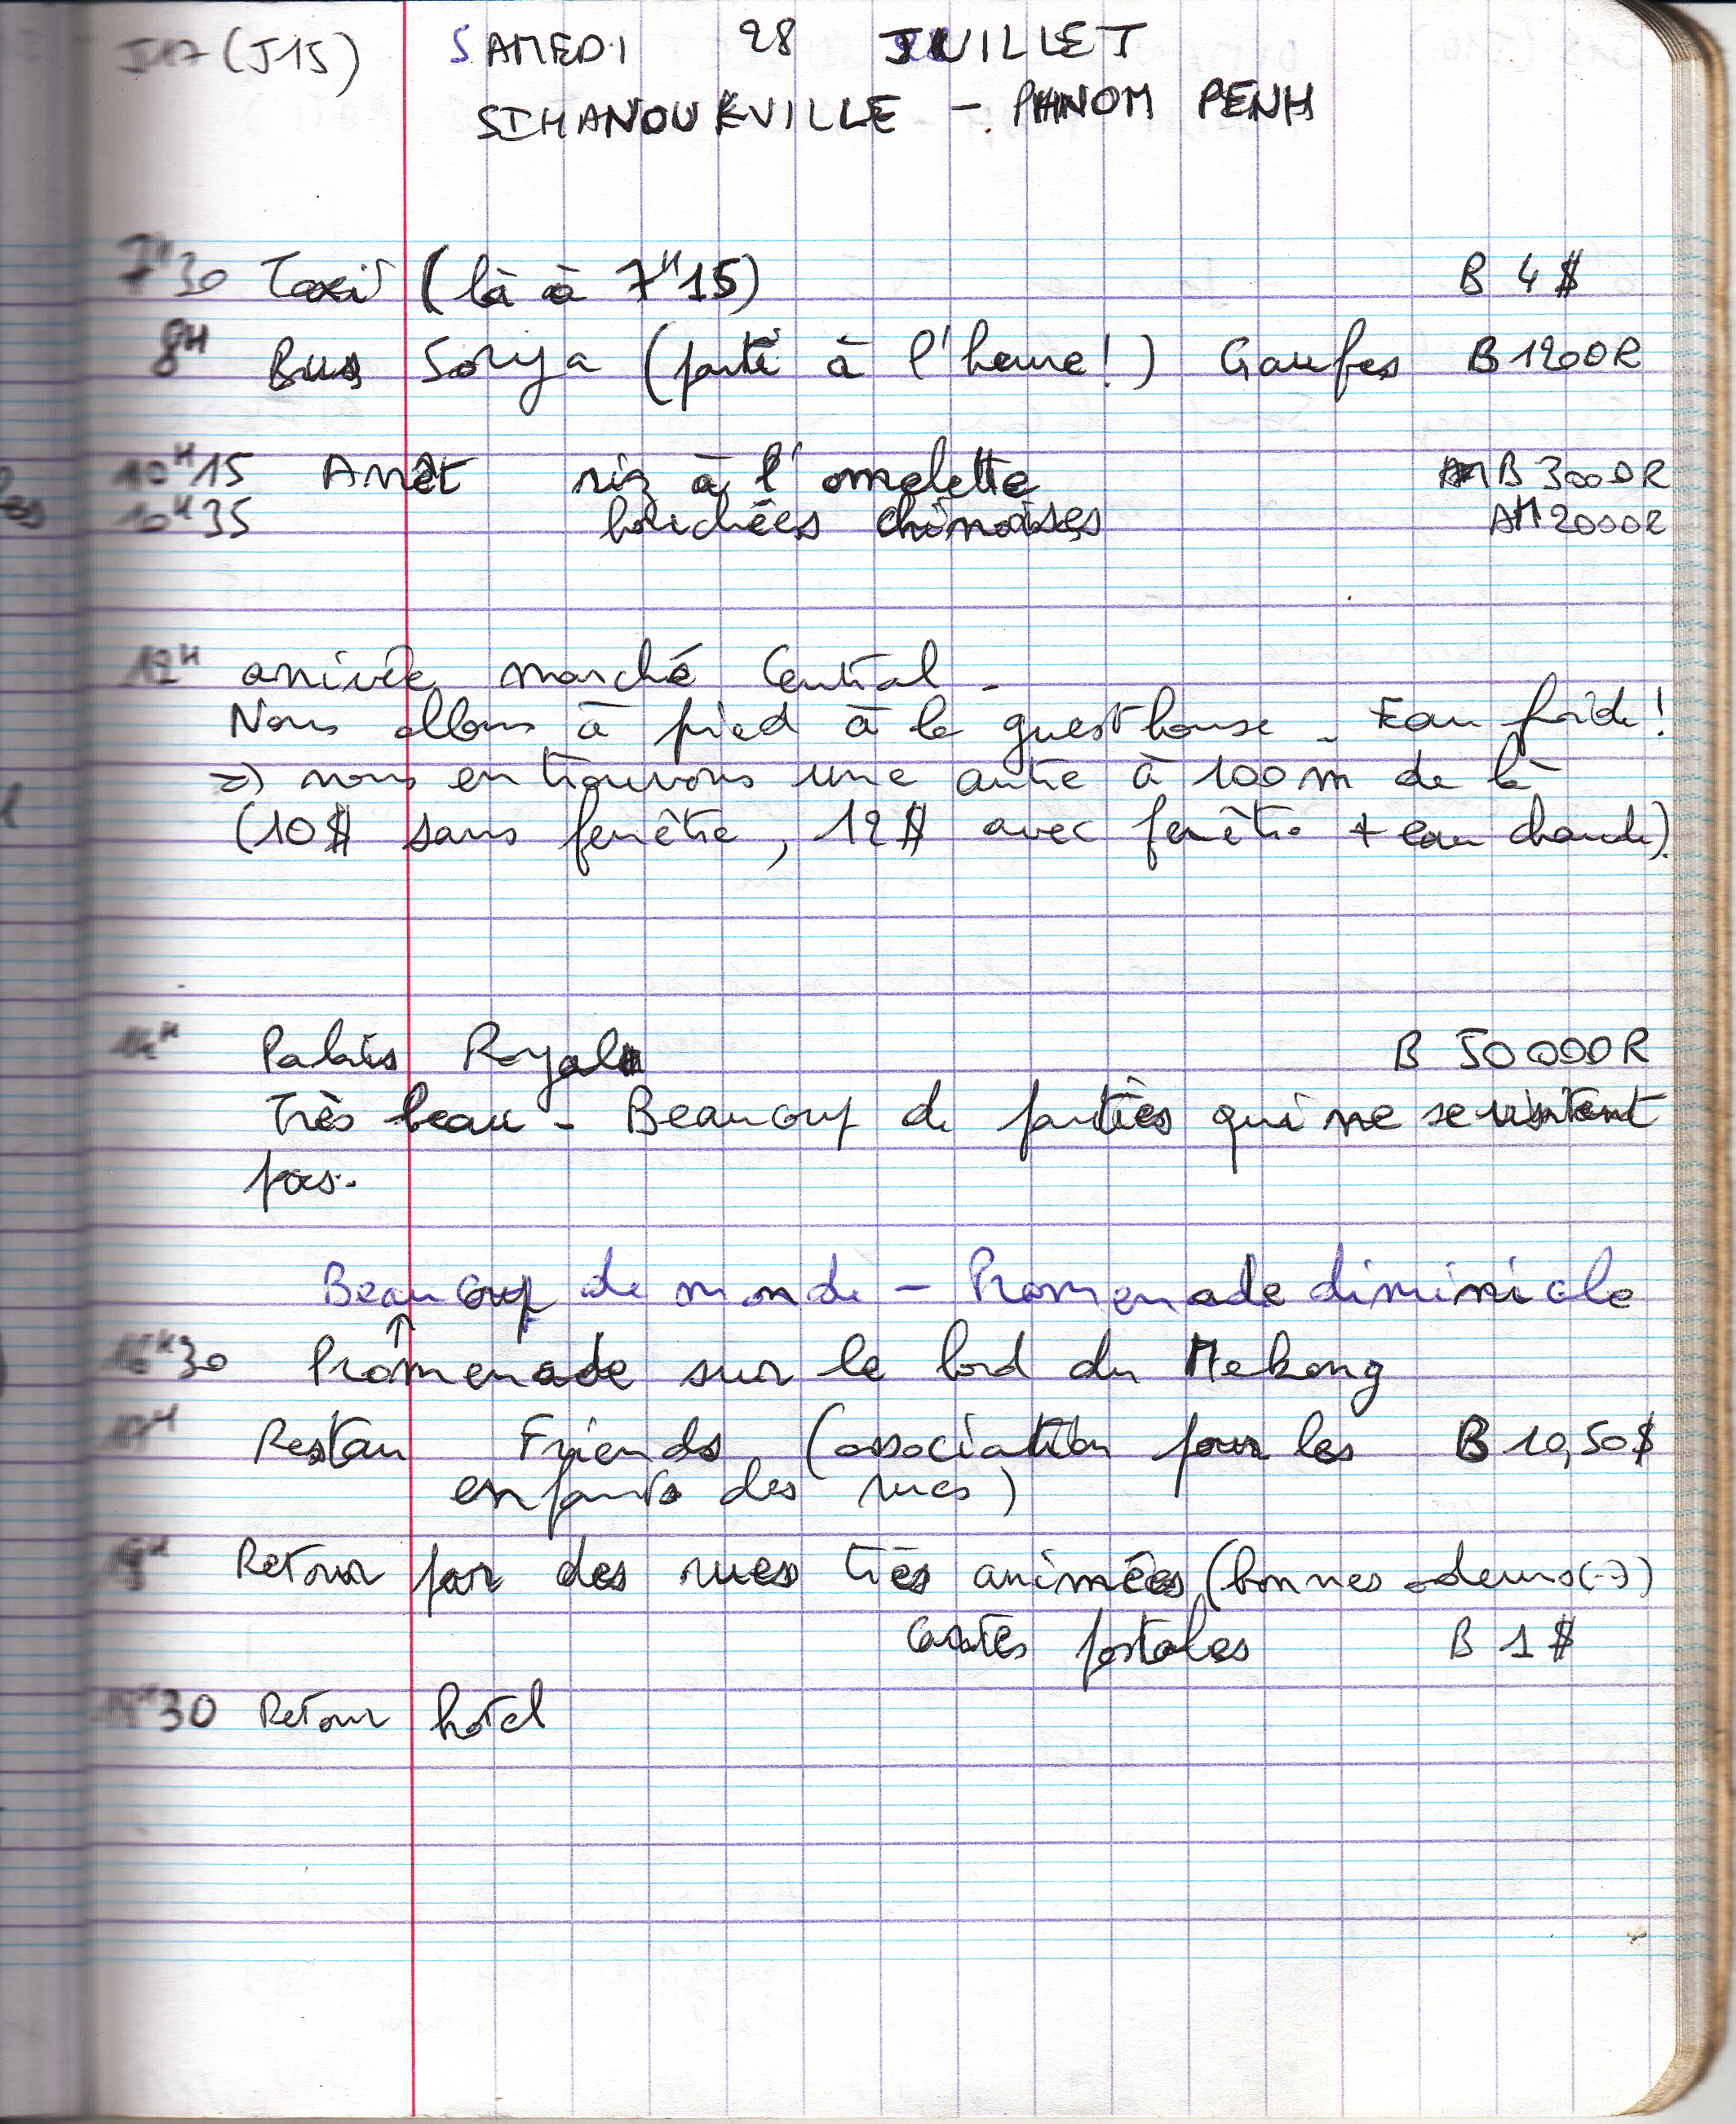 J17 (J15) SAMEDI 28 JUILLET
SIHANOUKVILLE - PHNOM PENH
7H30 Taxi (là à 7H15) B 4 $
8H Bus Sorya (parti à l'heure!) Gaufes B 1200R
10H15 Arrêt riz à l'omelette B 3000R
10H35 bouchées chinoises AM 2000R
12H arrivée marché Central -
Nous allons à pied à la guesthouse - Eau froide!
=> nous en trouvons une autre à 100 m de là
(10$ sans fenêtre, 12$ avec fenêtre + eau chaude).
14H Palais Royal B 50 000R
Très beau - Beaucoup de parties qui ne se visitent
pas.
Beaucoup de monde - Promenade diminicale
↑
16H30 Promenade sur le bord du Mekong
17H Restau Friends (association pour les B 10,50$
enfants des rues)
Retour par des rues très animées (bonnes odeurs
cartes postales B 1 $
30 Retour hotel